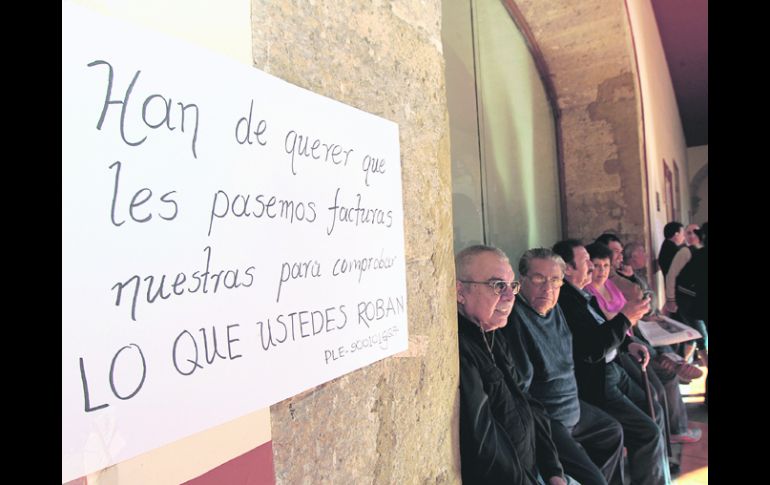 Han de querer que
les pasemos facturas
nuestras para comprobar
LO QUE USTEDES ROBAN